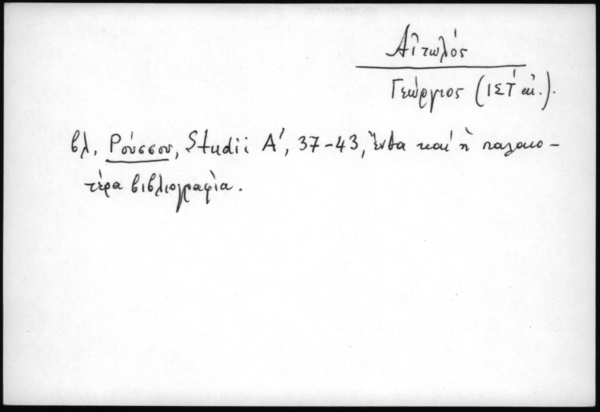 Αἰτωλός
Γεώργιος (ΙΣΤ΄ αἰ.).
βλ. Ρούσσου, Studii Α΄, 37-43, ἔνθα καί ἡ παλαιο-
τέρα βιβλιογραφία.